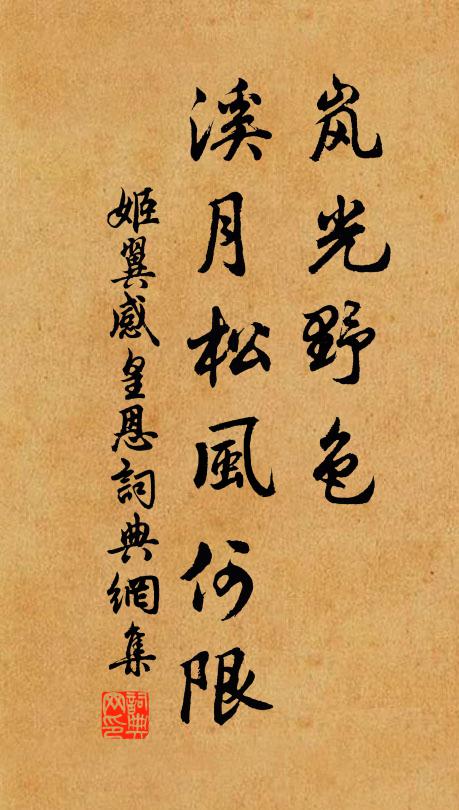 岚光野色
溪月松風何限
姬翼感皇恩詞典網集
詞典网印